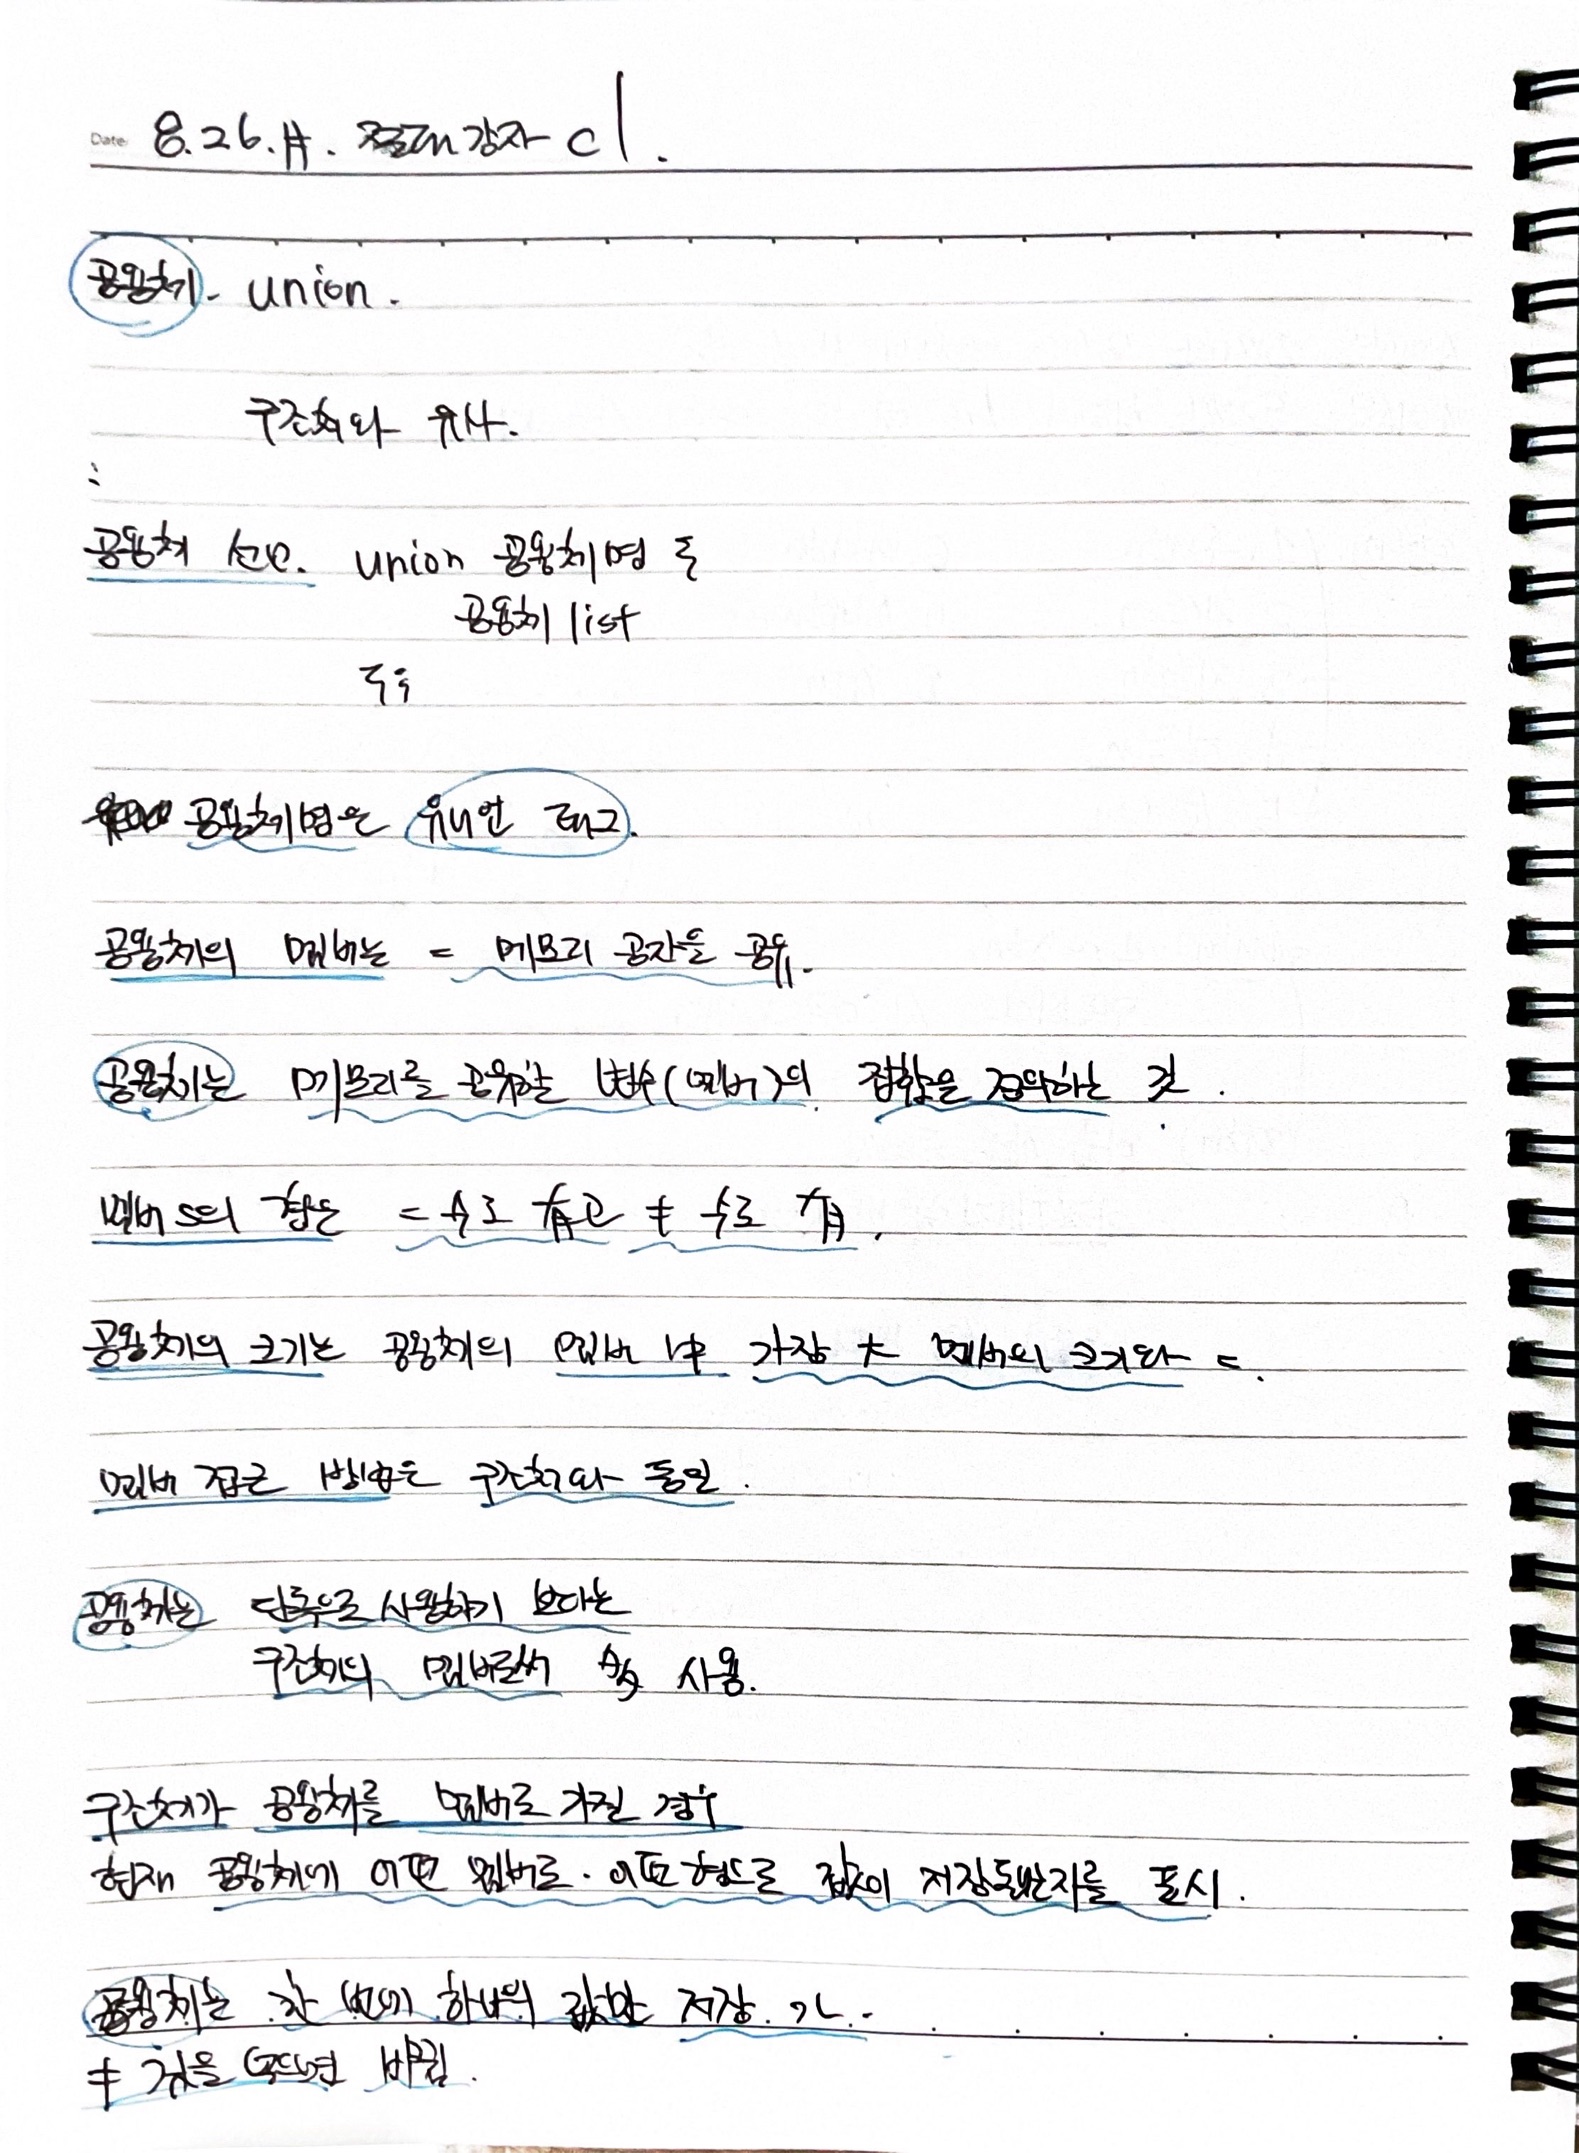 Date 8.26.火. 강좌 C
공용체 - union.
구조체와 유사.
:
공용체 선언. union 공용체명 {
공용체 list
};
공용체명은 유니언 태그.
공용체의 멤버는 = 메모리 공간을 공유.
공용체는 메모리를 공유할 변수(멤버)의 집합을 정의하는 것.
멤버s의 형은 = 수로 有고 ≠ 수로 有.
공용체의 크기는 공용체의 멤버 中 가장 大 멤버의 크기와 =.
멤버 접근 방법은 구조체와 동일.
공용체는 단독으로 사용하기 보다는
구조체의 멤버로써 多 사용.
구조체가 공용체를 멤버로 가진 경우
현재 공용체에 어떤 멤버로. 어떤 형으로 값이 저장됐는지를 표시.
공용체는 한 번에 하나의 값만 저장. 가-.
≠ 값을 넣으면 바뀜.